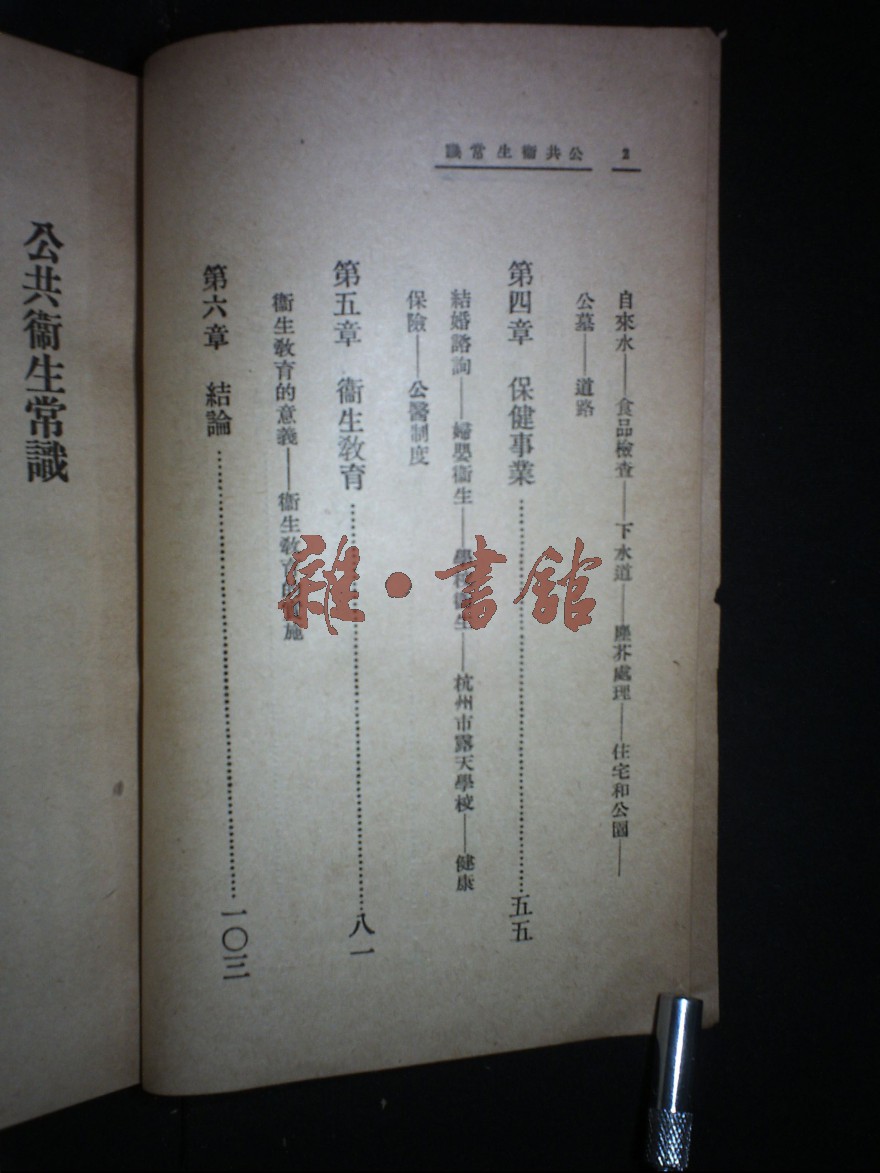 2 公共衞生常識
自來水——食品檢查——下水道——塵芥處理——住宅和公園——
公墓——道路
第四章 保健事業……………………五五
結婚諮詢——婦嬰衞生——學校衞生——杭州市露天學校——健康
保險——公醫制度
第五章 衞生敎育……………………八一
衞生敎育的意義——衞生敎育的實施
第六章 結論……………………一〇三
公共衞生常識
雜·書館